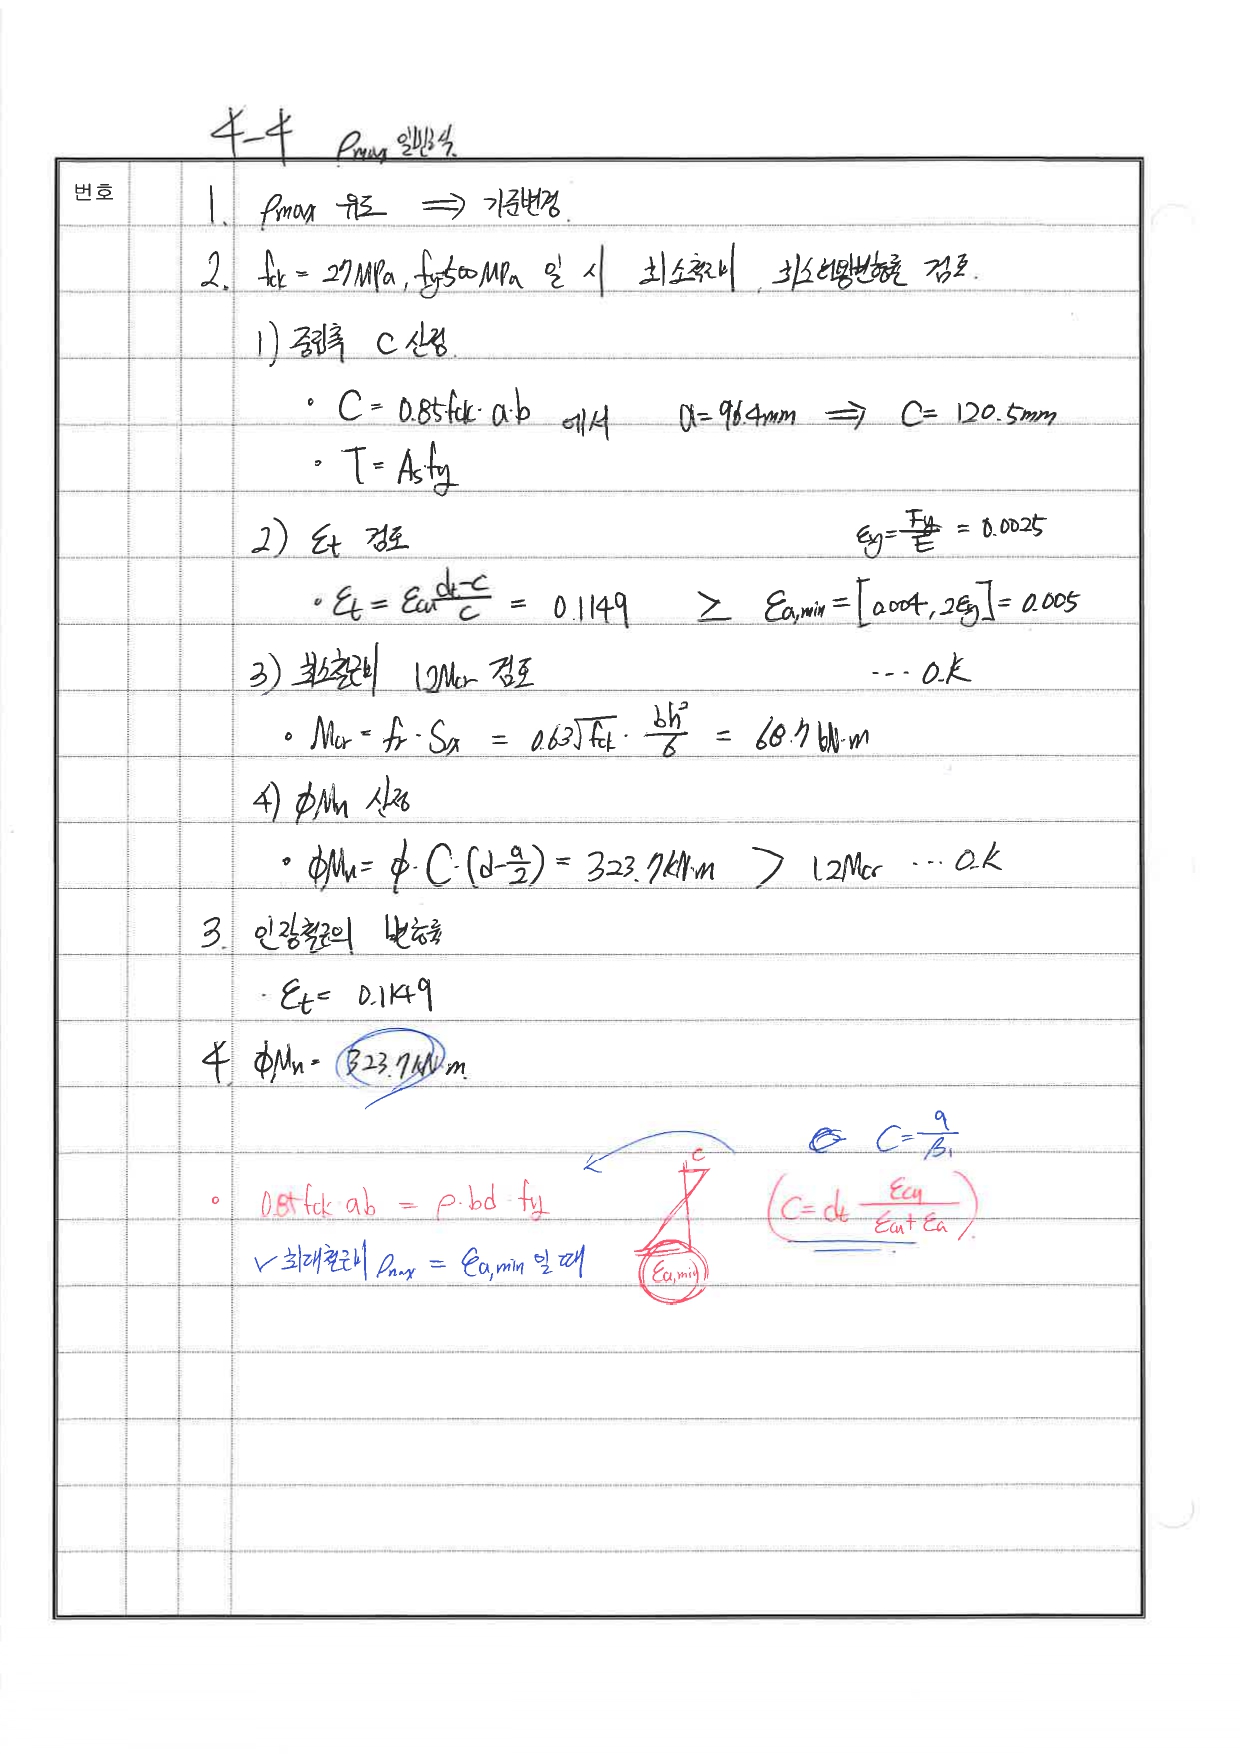 4-4 ρmax 일반식.
번호
1. ρmax 유도 ⇒ 기준변경.
2. fck = 27MPa, fy500MPa 일 시 최소철근비, 최소허용변형률 검토.
1) 중립축 C 산정.
• C = 0.85fck·a·b 에서 a = 96.4mm ⇒ C = 120.5mm
• T = As·fy
2) εt 검토 εy = fy/E = 0.0025
• εt = εcu (dt-c)/c = 0.1149 ≥ εa,min = [0.004, 2εy] = 0.005
3) 최소철근비 1.2Mcr 검토 ... O.K
• Mcr = fr · Sx = 0.63√fck · bh²/6 = 68.7 kN·m
4) φMn 산정
• φMn = φ·C·(d-a/2) = 323.7kN·m > 1.2Mcr ... O.K
3. 인장철근의 변형률
· εt = 0.1149
4. φMn = 323.7kN·m.
C = a/β1
C
• 0.85fck·ab = ρ·bd·fy (C = dt εcu/(εcu+εa)).
✓ 최대철근비 ρmax = εa,min 일 때 εa,min